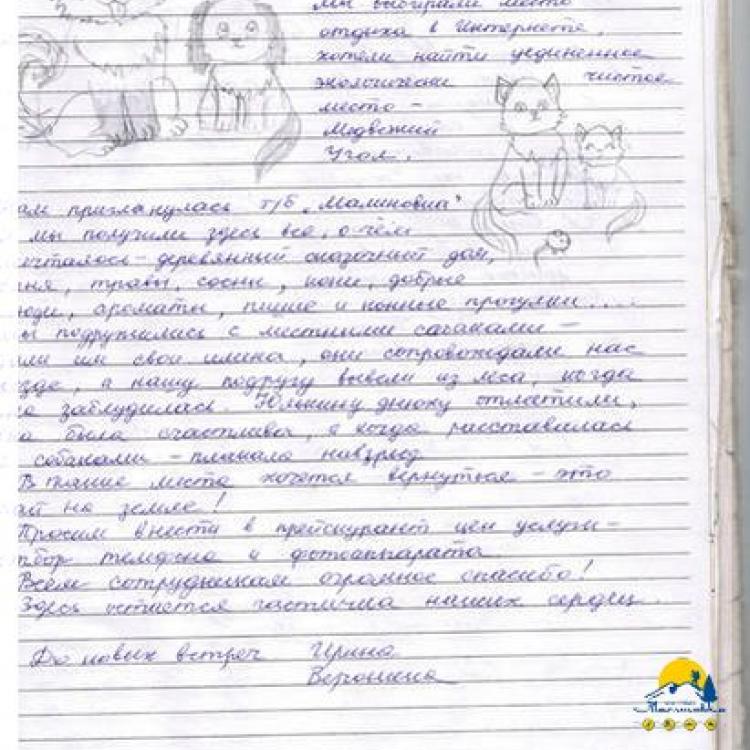 мы выбирали место
отдыха в Интернете,
хотели найти уединенное
экологически чистое
место -
Медвежий
Угол.
ам приглянулась т/б "Малиновка"
мы получили здесь все, о чём
чталось - деревянный сказочный дом,
ня, травы, сосны, кони, добрые
юди, ароматы, пешие и конные прогулки....
ы подружились с местными собаками -
али им свои имена, они сопровождали нас
зде, а нашу подругу вывели из леса, когда
на заблудилась. Юлькину днюху отметили,
на была счастлива, а когда расставалась
с собаками - плакала навзрыд
В такие места хочется вернуться - это
ай на земле!
Просим внести в прейскурант цен услуги -
тбор телефона и фотоаппарата
Всем сотрудникам огромное спасибо!
Здесь остается частичка наших сердец.
До новых встреч Ирина
Вероника
Малиновка